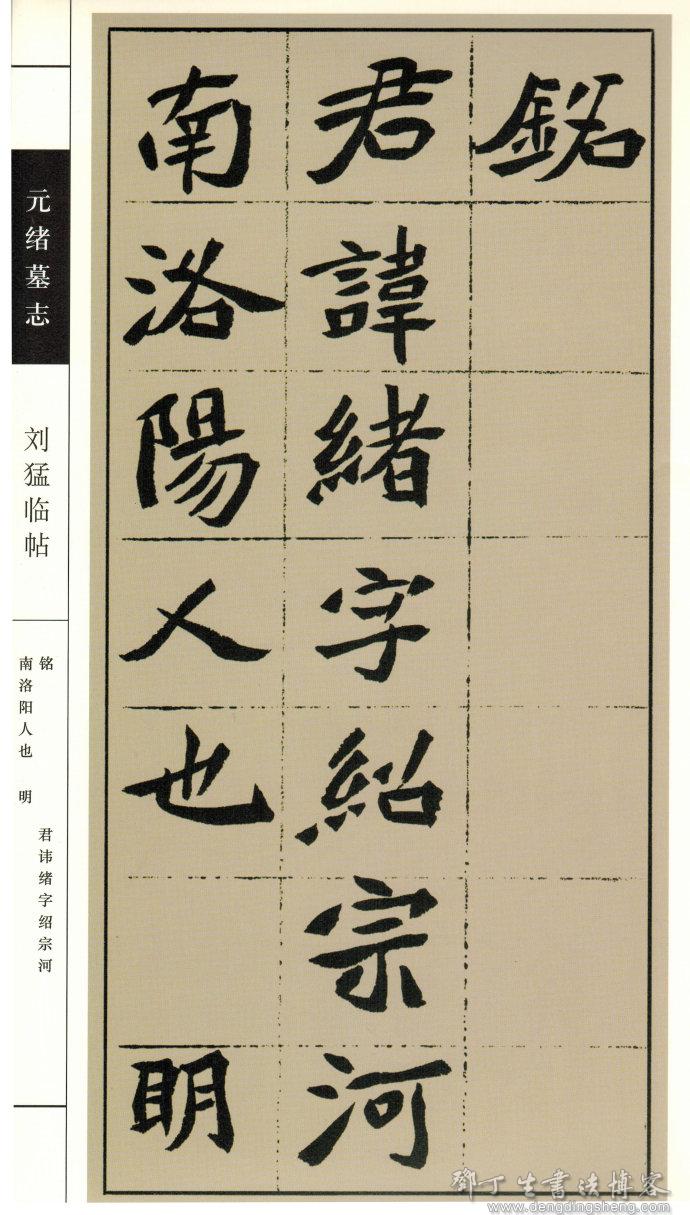 銘
君諱緒字紹宗河
南洛陽人也　明
元绪墓志
刘猛临帖
铭　君讳绪字绍宗河
南洛阳人也　明
鄧丁生書法博客
www.dengdingsheng.com